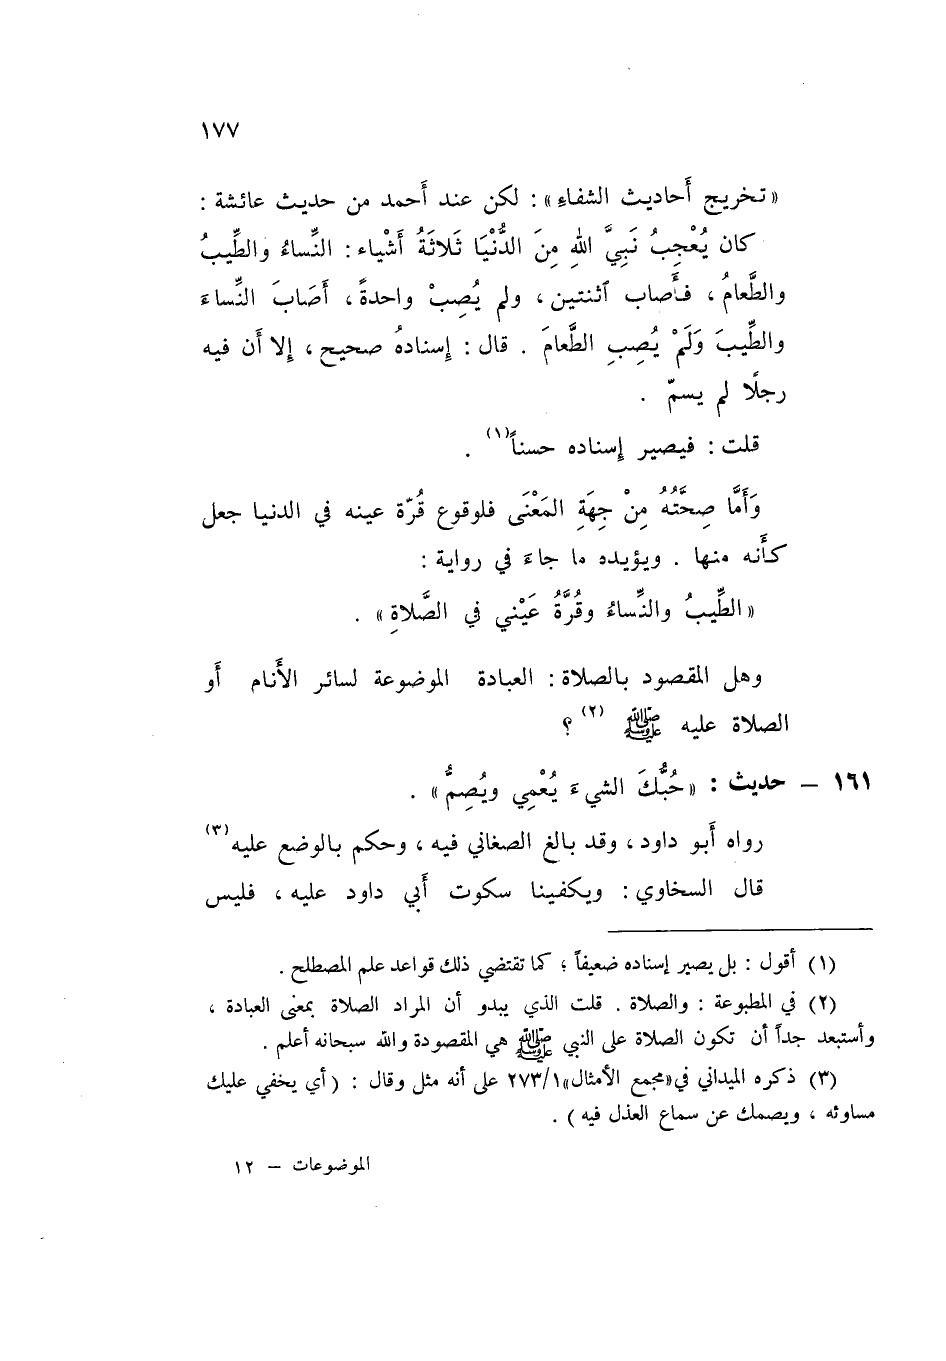 ١٧٧
«تخريج أحاديث الشفاء» : لكن عند أَحمد من حديث عائشة :
كان يُعْجِبُ نَبِيَّ اللهِ مِنَ الدُّنْيَا ثَلاثَةُ أَشْياء : النِّساءُ والطِّيبُ
والطَّعامُ ، فأَصاب ٱثنتين ، ولم يُصِبْ واحدةً ، أَصَابَ النِّساءَ
والطِّيبَ وَلَمْ يُصِبِ الطَّعامَ . قال : إسنادهُ صحيح ، إلا أَن فيه
رجلًا لم يسمّ .
قلت : فيصير إسناده حسناً(١) .
وَأَمَّا صِحَّتُهُ مِنْ جِهَةِ المَعْنَى فلوقوع قُرّة عينه في الدنيا جعل
كأَنه منها . ويؤيده ما جاءَ في رواية :
«الطِّيبُ والنِّساءُ وقُرَّةُ عَيْني في الصَّلاةِ» .
وهل المقصود بالصلاة : العبادة الموضوعة لسائر الأَنام أَو
الصلاة عليه ﷺ (٢) ؟
١٦١ – حديث : «حُبُّكَ الشيءَ يُعْمِي ويُصِمُّ» .
رواه أَبو داود ، وقد بالغ الصغاني فيه ، وحكم بالوضع عليه(٣)
قال السخاوي : ويكفينا سكوت أَبي داود عليه ، فليس
(١) أقول : بل يصير إسناده ضعيفاً ؛ كما تقتضي ذلك قواعد علم المصطلح .
(٢) في المطبوعة : والصلاة . قلت الذي يبدو أن المراد الصلاة بمعنى العبادة ،
وأستبعد جداً أن تكون الصلاة على النبي ﷺ هي المقصودة والله سبحانه أعلم .
(٣) ذكره الميداني في «مجمع الأمثال» ٢٧٣/١ على أنه مثل وقال : ( أي يخفي عليك
مساوئه ، ويصمك عن سماع العذل فيه ) .
الموضوعات – ١٢